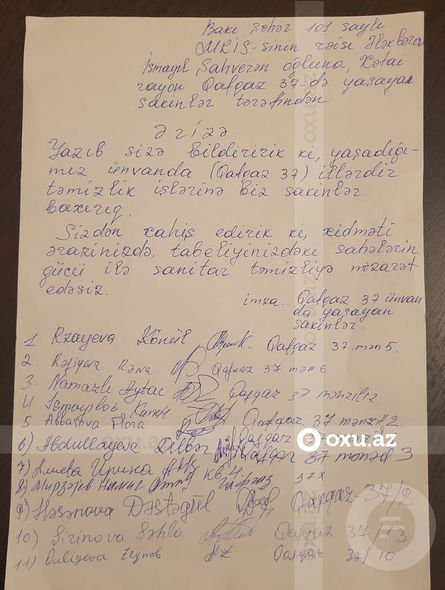 Bakı şəhər 101 saylı
MKİS-sinin rəisi Ələkbərov
İsmayıl Şahverən oğluna, Xətai
rayon Qafqaz 37-də yaşayan
sakinlər tərəfindən
Ərizə
Yazıb sizə bildiririk ki, yaşadığı-
mız ünvanda (Qafqaz 37) illərdir
təmizlik işlərinə biz sakinlər
baxırıq.
Sizdən xahiş edirik ki, xidməti
ərazinizdə, tabeliyinizdəki sahələrin
gücü ilə sanitar təmizliyə nəzarət
edəsiz.
imza. Qafqaz 37 ünvan
da yaşayan
sakinlər.
1 Rzayeva Könül Qafqaz 37 mən 5.
2. Rəfiyeva Rəna Qafqaz 37 mən 6
3. Namazlı Aytac Qafqaz 37 mənzil 2
4 İsmayılov
5 Abbasova Flora Qafqaz 37 mənzil 2.
6) Abdullayeva Dilbər Qafqaz 37 mənzil 3
7) Алиева Ирина кв. 4
8) 37
9) Həsənova Dəstəgül Qafqaz 37/2
10) Şirinova Şəhla Qafqaz 37/13
11) Quliyeva Qafqaz 37/10
oxu.az
oxu.az